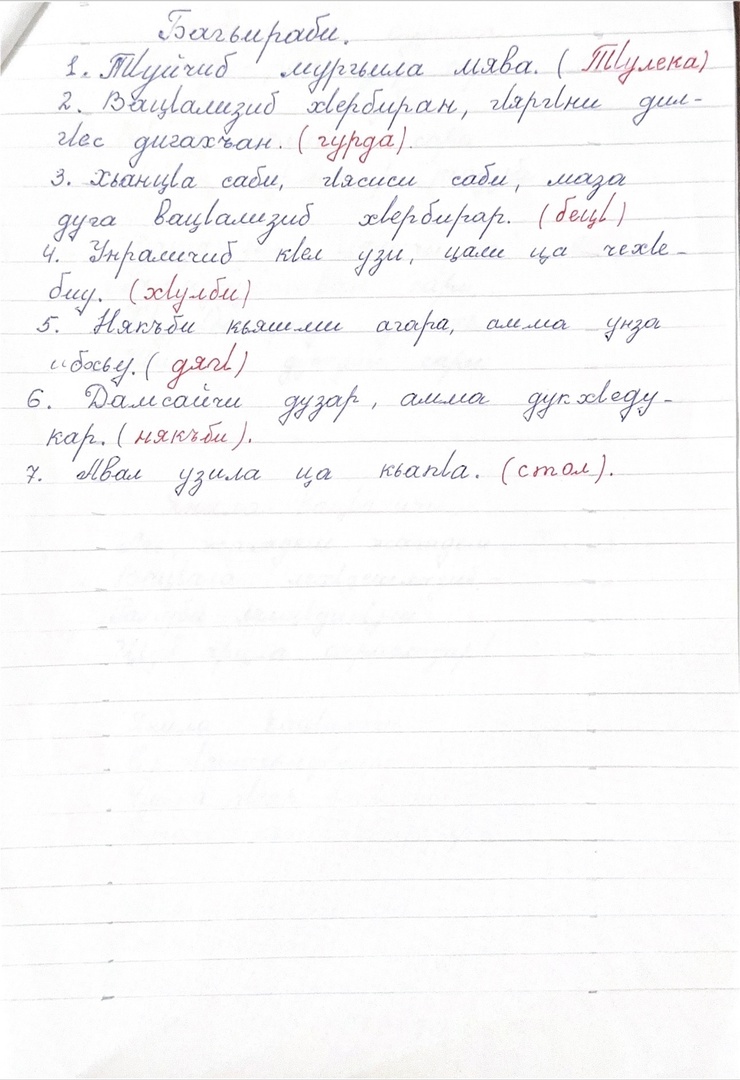 Багьираби.
1. ТӀуйчиб мургьила мява. (ТӀулека)
2. ВацӀализиб хӀербиран, гӀяргӀни дил-
гӀес дигахъан. (гурда).
3. Хьанцӏа саби, гӀясиси саби, маза
дуга вацӀализиб хӀербирар. (бецӀ)
4. Унраличиб кӀел узи, цали ца чехӀе-
биу. (хӀулби)
5. Някъби кьяшми агара, амма унза
ибхьу. (дягӀ)
6. Дамсайчи дузар, амма дукхӀеду-
кар. (някъби).
7. Авал узила ца кьапӀа. (стол).